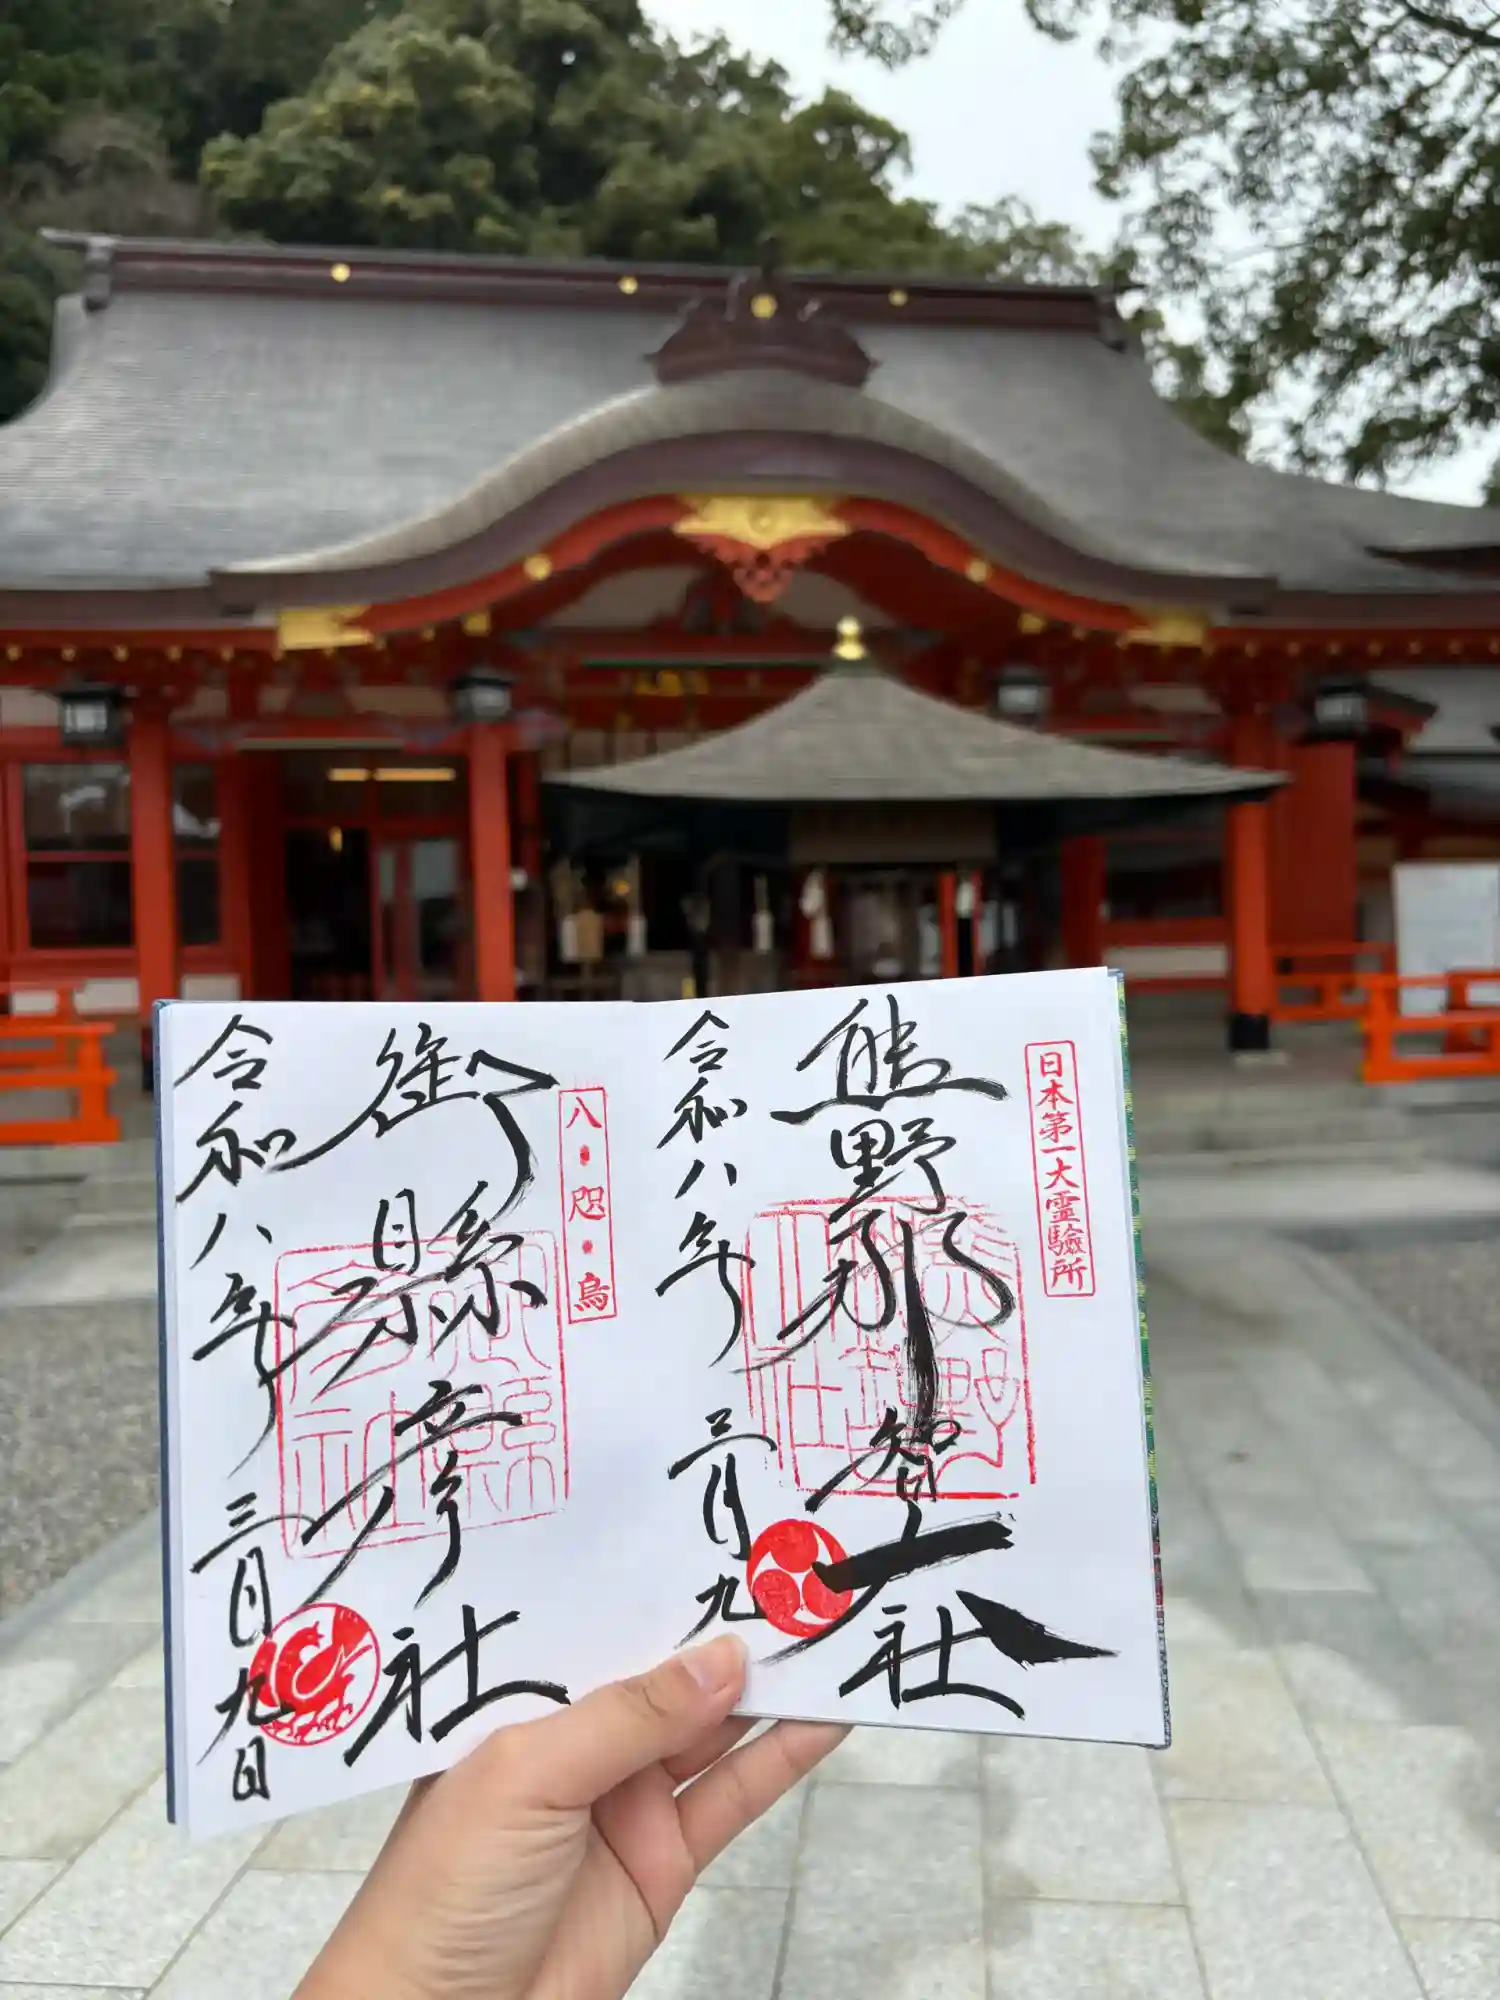 日本第一大霊驗所
熊野那智大社
令和八年
三月九
八・咫・烏
御縣彦社
令和八年
三月九日